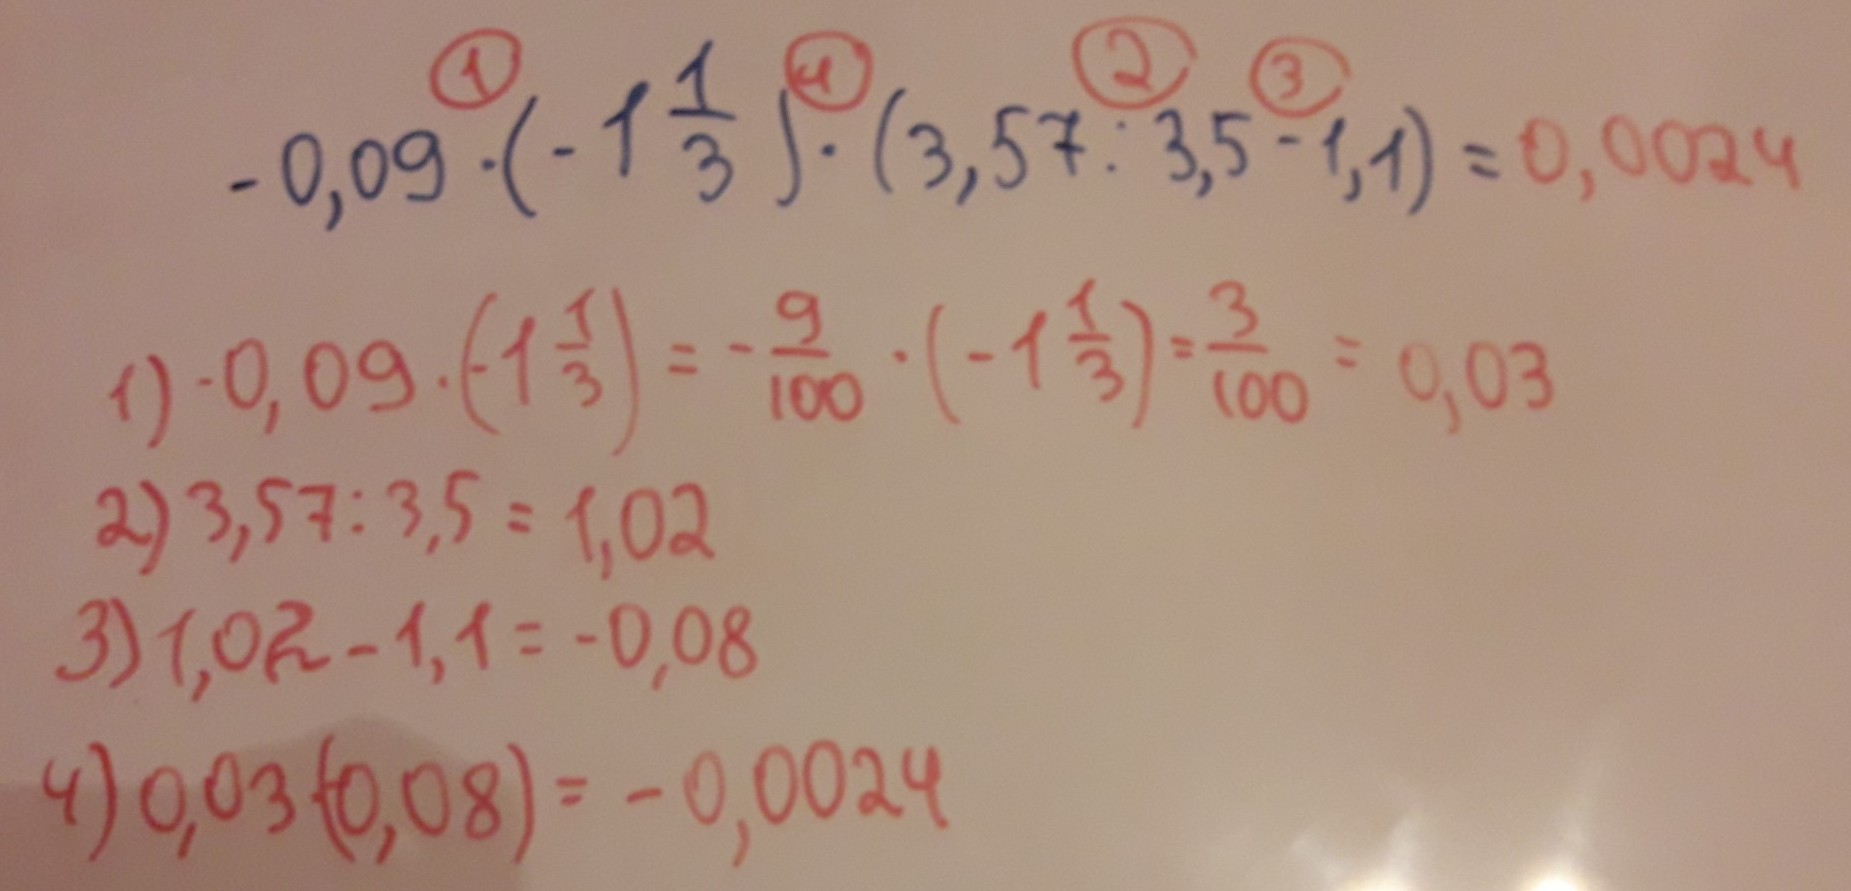 ① ④ ② ③
-0,09·(-1 1/3)·(3,57:3,5-1,1)=0,0024
1) -0,09·(-1 1/3)=-9/100·(-1 1/3)=3/100=0,03
2) 3,57:3,5=1,02
3) 1,02-1,1=-0,08
4) 0,03(-0,08)=-0,0024